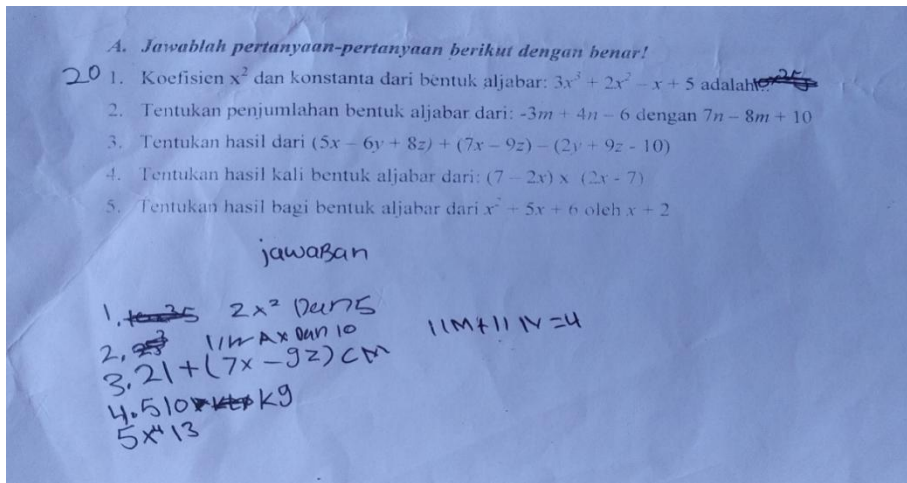 A. Jawablah pertanyaan-pertanyaan berikut dengan benar!
20 1. Koefisien x² dan konstanta dari bentuk aljabar: 3x³ + 2x² – x + 5 adalah
2. Tentukan penjumlahan bentuk aljabar dari: -3m + 4n – 6 dengan 7n – 8m + 10
3. Tentukan hasil dari (5x – 6y + 8z) + (7x – 9z) – (2y + 9z - 10)
4. Tentukan hasil kali bentuk aljabar dari: (7 – 2x) x (2x - 7)
5. Tentukan hasil bagi bentuk aljabar dari x² + 5x + 6 oleh x + 2
jawaban
1. 2x² Dan 5
2. Dan 10 11M+11N=4
3. 21+(7x-9z) CM
4. 510 kg
5x⁴ 13